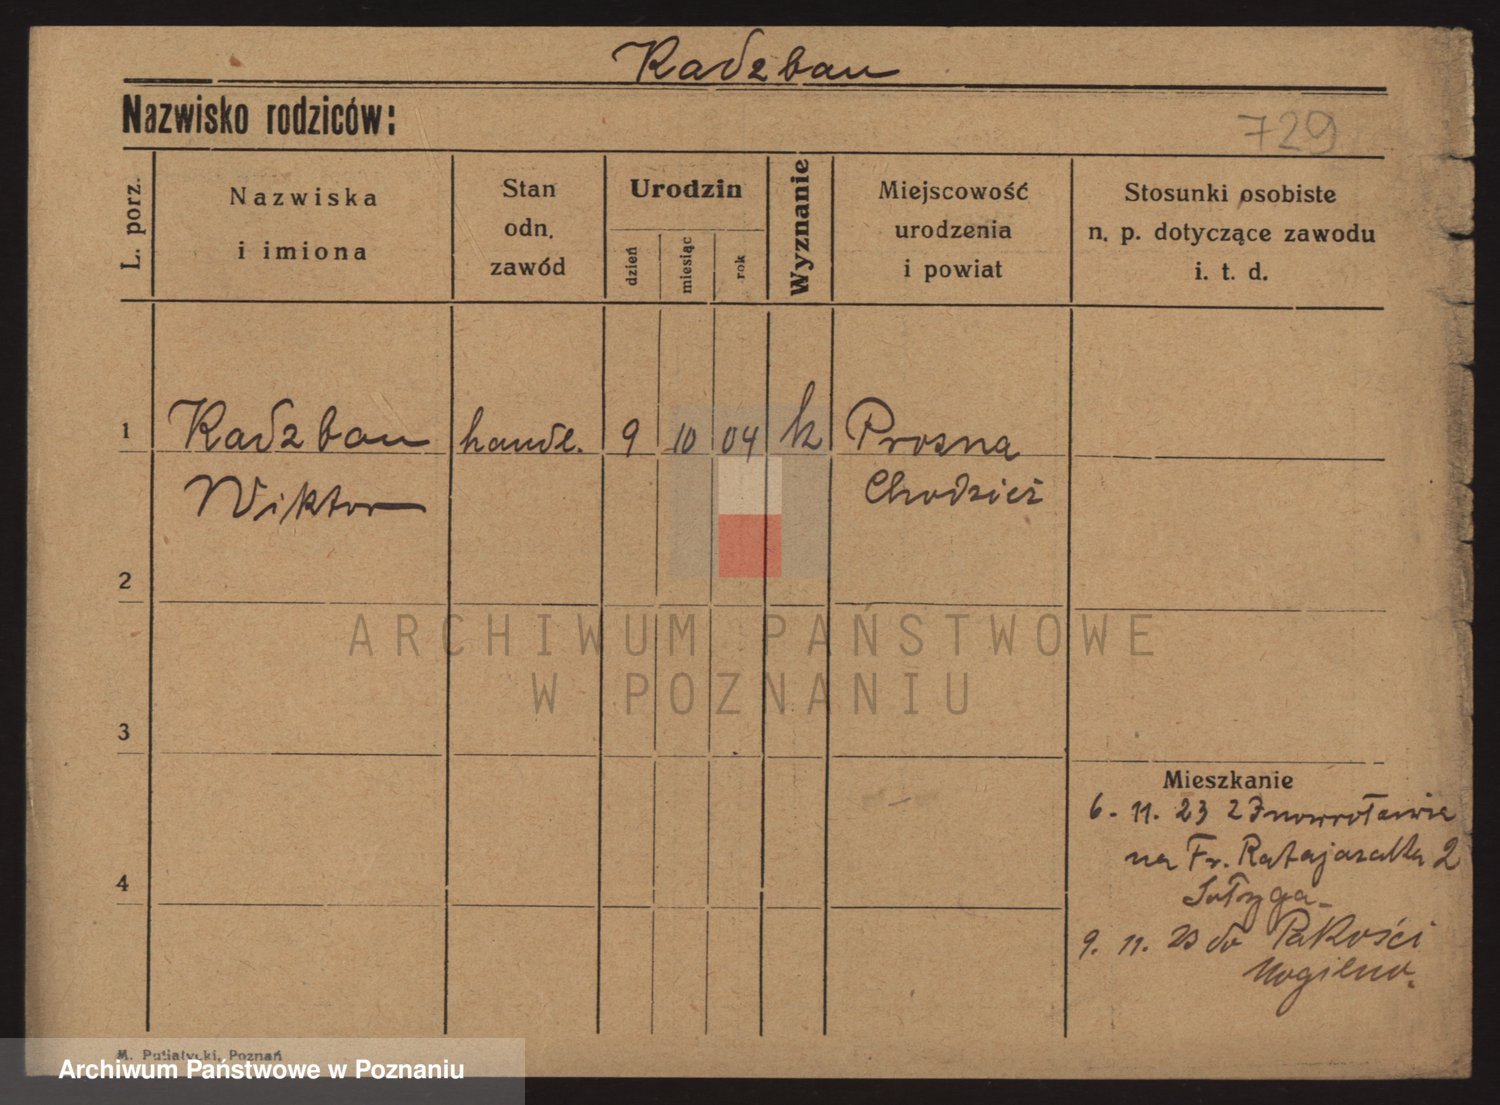 Radzban
Nazwisko rodziców:
729
L. porz.
Nazwiska
i imiona
Stan
odn.
zawód
Urodzin
dzień
miesiąc
rok
Wyznanie
Miejscowość
urodzenia
i powiat
Stosunki osobiste
n. p. dotyczące zawodu
i. t. d.
1
Radzban
Wiktor
handl.
9
10
04
k
Prosna
Chodzież
2
3
4
ARCHIWUM PAŃSTWOWE
W POZNANIU
Mieszkanie
6. 11. 23 z Inowrocławia
na Fr. Ratajczaka 2
9. 11. 23 do Pakości
Mogilno.
M. Putiatycki, Poznań
Archiwum Państwowe w Poznaniu